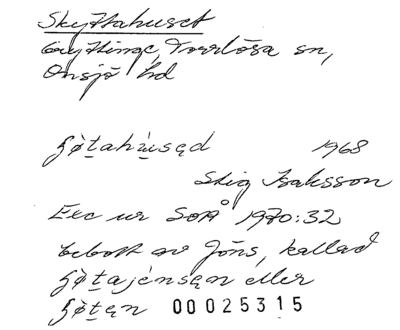 Skyttahuset
Gryttinge, Torrlösa sn,
Onsjö hd
1968
Stig Isaksson
Exc ur SOÅ 1970:32
bebott av Jöns, kallad
eller
00025315